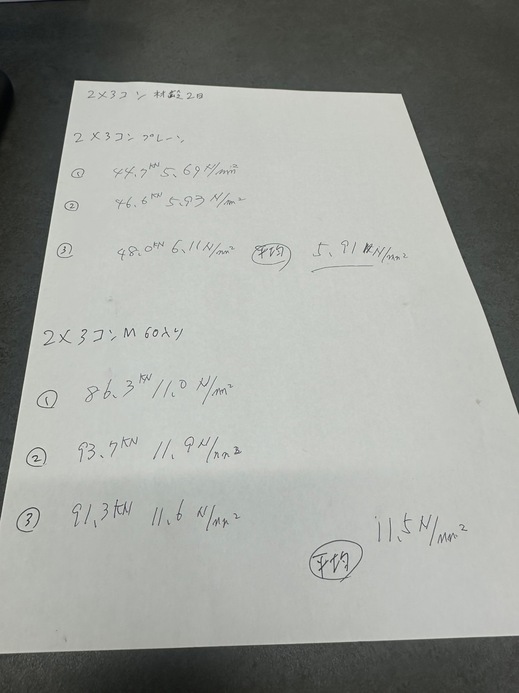 2×3コン 材齢2日
2×3コン プレーン
① 44.7KN 5.69N/mm²
② 46.6KN 5.93N/m²
③ 48.0KN 6.11N/mm² 平均 5.91N/mm²
2×3コン M60入り
① 86.3KN 11.0N/mm²
② 93.7KN 11.9N/mm2
③ 91.3KN 11.6N/mm²
平均 11.5N/mm²